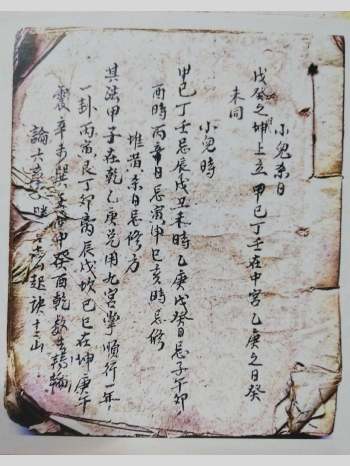 小兒杀日
戊癸之坤上立甲已丁壬在中宮乙庚之日癸
未同
小兒時
甲已丁壬忌辰戌丑未時乙庚戊癸日忌子午卯
酉時丙辛日忌寅申巳亥時忌修
推苗杀日忌修方
其法甲子在乾乙庚兌用九宮掌順行一年
一卦丙寅艮丁卯离辰戊坎已巳在坤庚午
震辛未巽壬申癸酉乾数去輪
論六起訣十二山